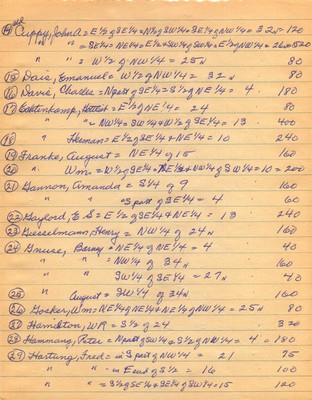 (14) Cuppy, John A = E½ of SE¼ = N½ of SW¼ SE¼ of NW¼ = 32 N = 120
" " = SE¼ = NE¼ = E½ = SW¼ of = E½ of NW¼ = 26 = 520
" " = W½ of NW¼ = 25 N 80
(15) Dais, Emanuel = W½ of NW¼ = 32 N 80
(16) Davis, Charles = N part of SE¼ = S½ of NE¼ = 4. 180
(17) , = E½ of NE¼ = 24 80
" " = NW¼ = SW¼ = W½ of SE¼ = 13 . 400
(18) " Herman = E½ of SE¼ = NE¼ = 10 240
(19) Franke, August = NE¼ of 15 160
(20) " Wm = W½ of SE¼ = of SW¼ = 10 = 200
(21) Gannon, Amanda = S¼ of 9 160
" " = S part of SE¼ = 4 60
(22) Gaylord, E S = E½ of SE¼ = NE¼ = 13 240
(23) Giesselmann, Henry = NW¼ of 24 N 160
(24) Gnuse, Barney = NE¼ of NE¼ = 4 40
" " = NW¼ of 34 N 160
" " SW¼ of SE¼ = 27 N 40
(25) " August = SW¼ of 34 N 160
(26) Gocker, Wm = NE¼ of NE¼ = N½ of NW¼ = 25 N 80
(27) Hamilton, W R = S½ of 24 320
(28) Hammang, Peter = N part of SW¼ = S½ of NW¼ = 4 = 180
(29) Hartung, Fred = in S part of NW¼ = 21 75
" " = in E end of S½ = 16 100
" " = S½ of SE¼ = SE¼ of SW¼ = 15 120